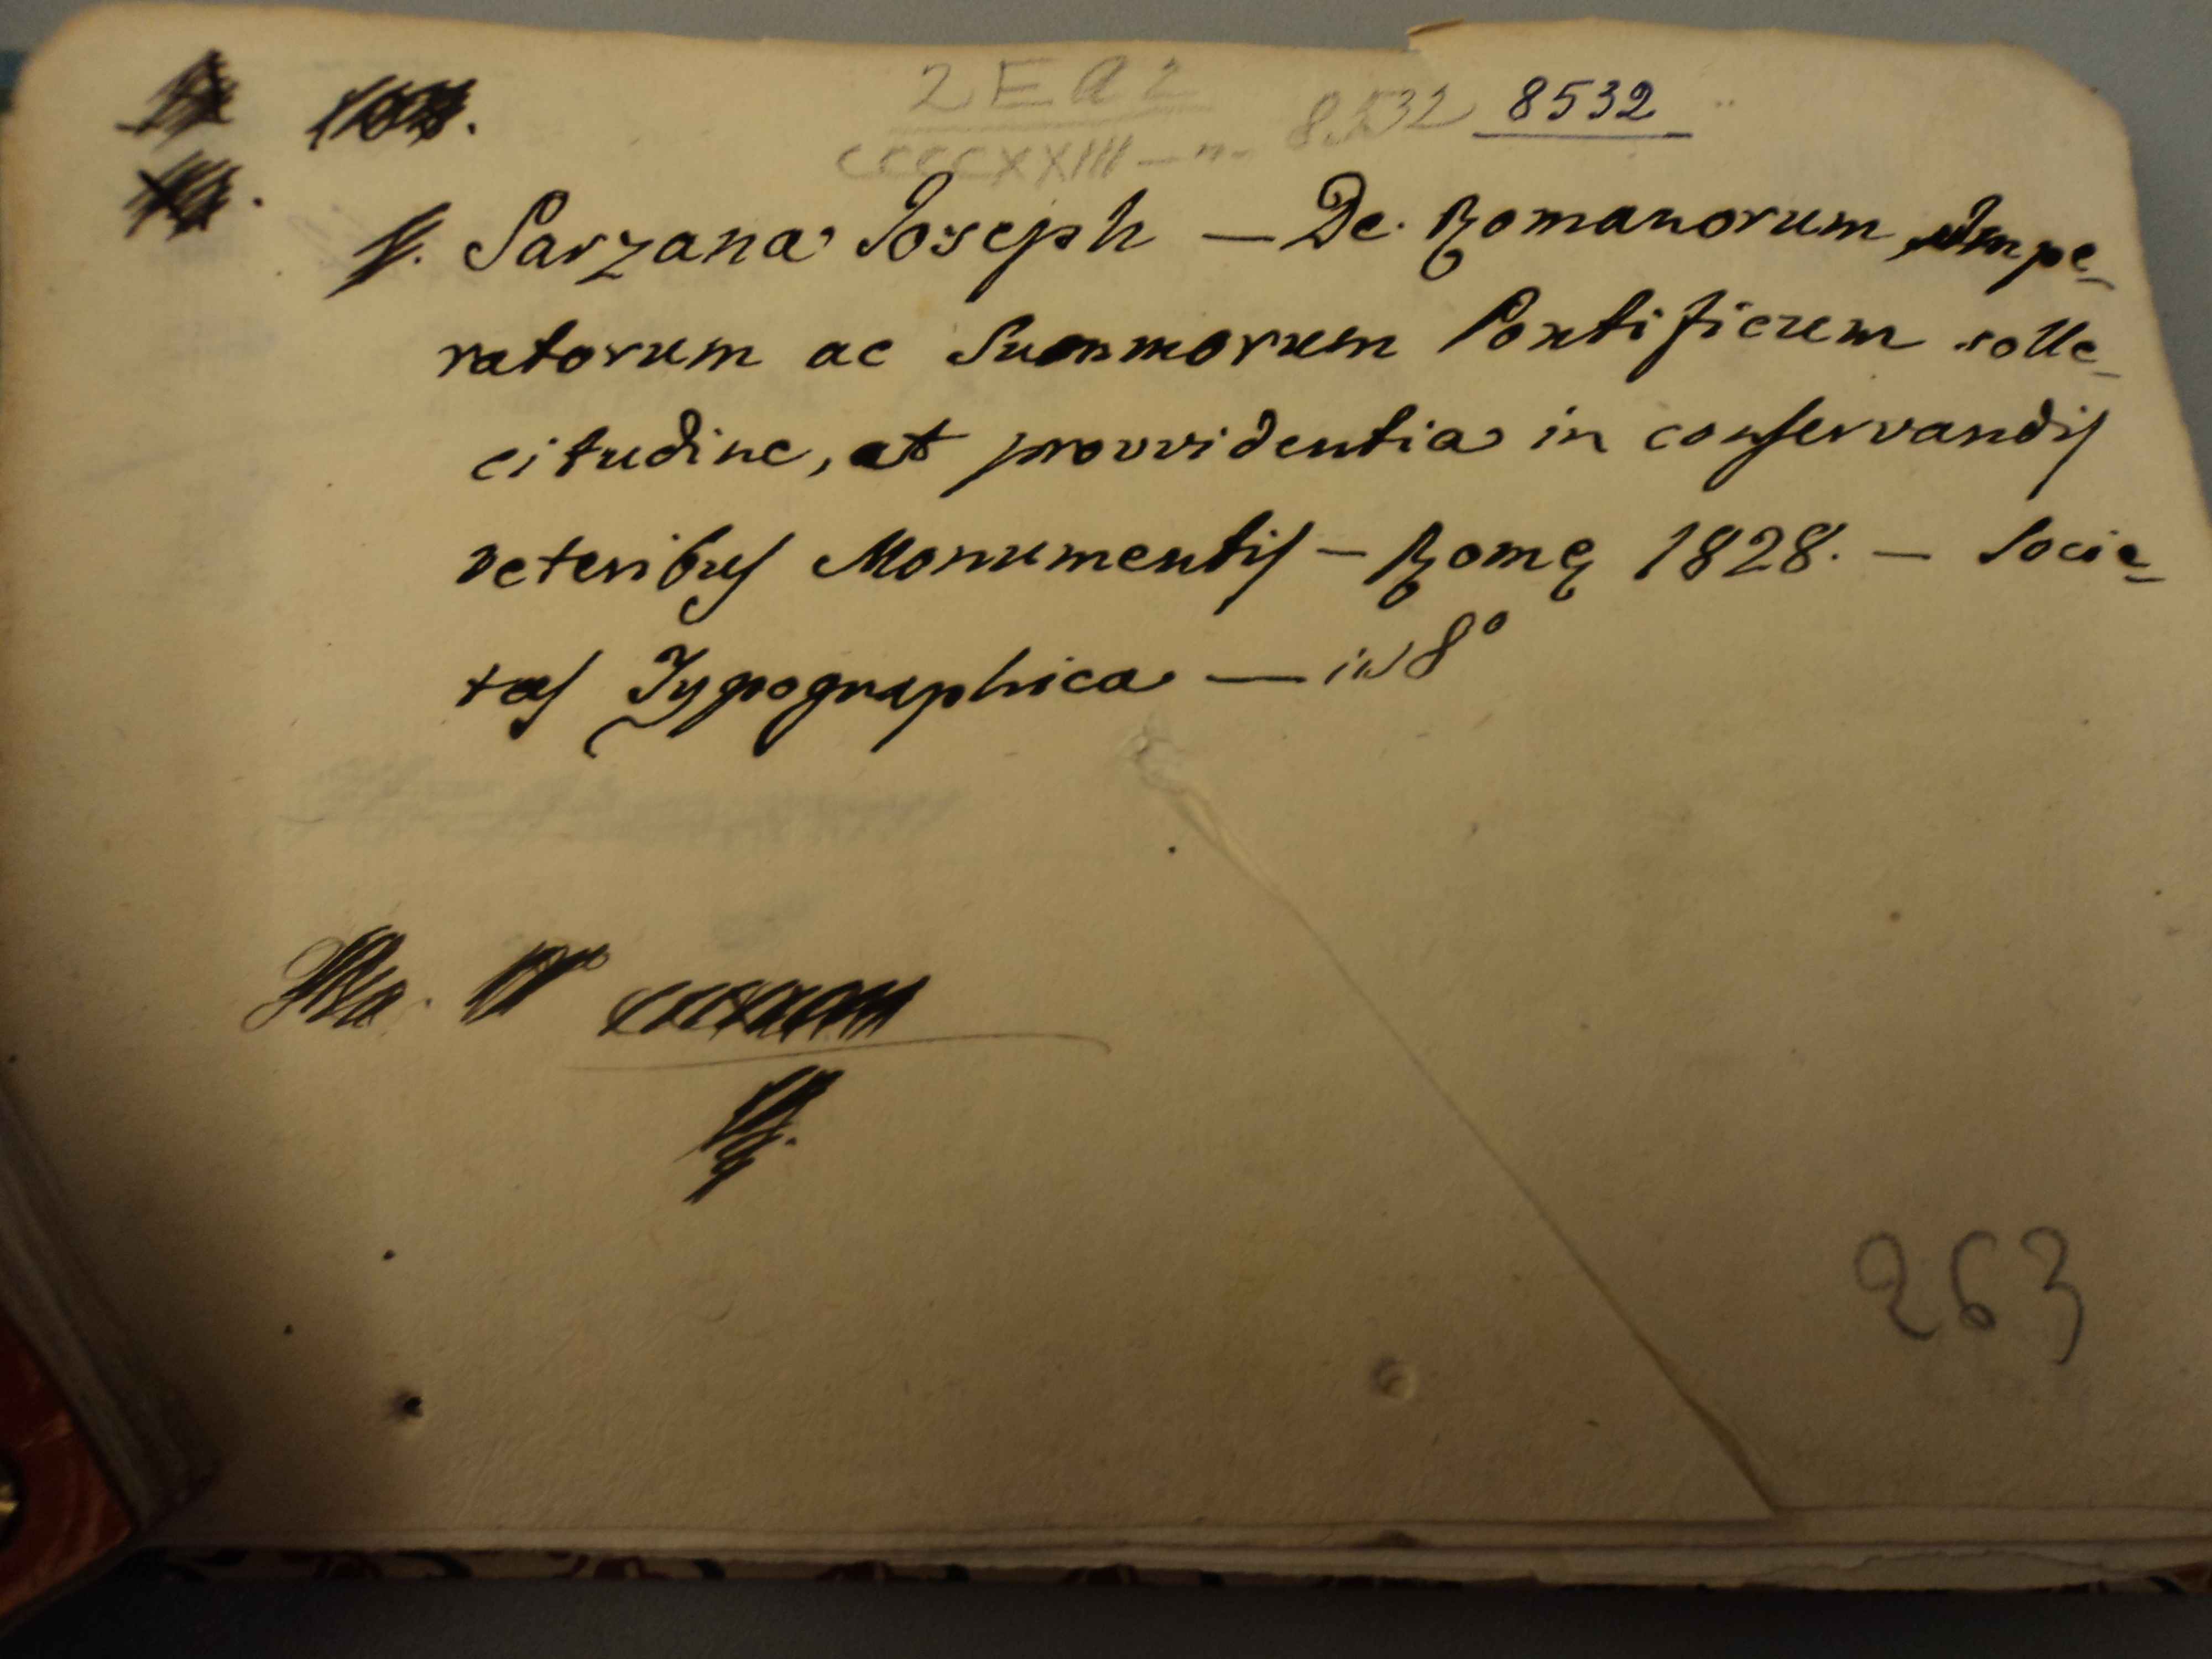 2 E A 2
CCCCXXIII — 8532 8532
Sarzana Joseph — De Romanorum Impe-
ratorum ac Summorum Pontificum solle-
citudine, et provvidentia in conservandis
veteribus Monumentis — Romę 1828. — Socie-
tas Typographica — in 8°
263